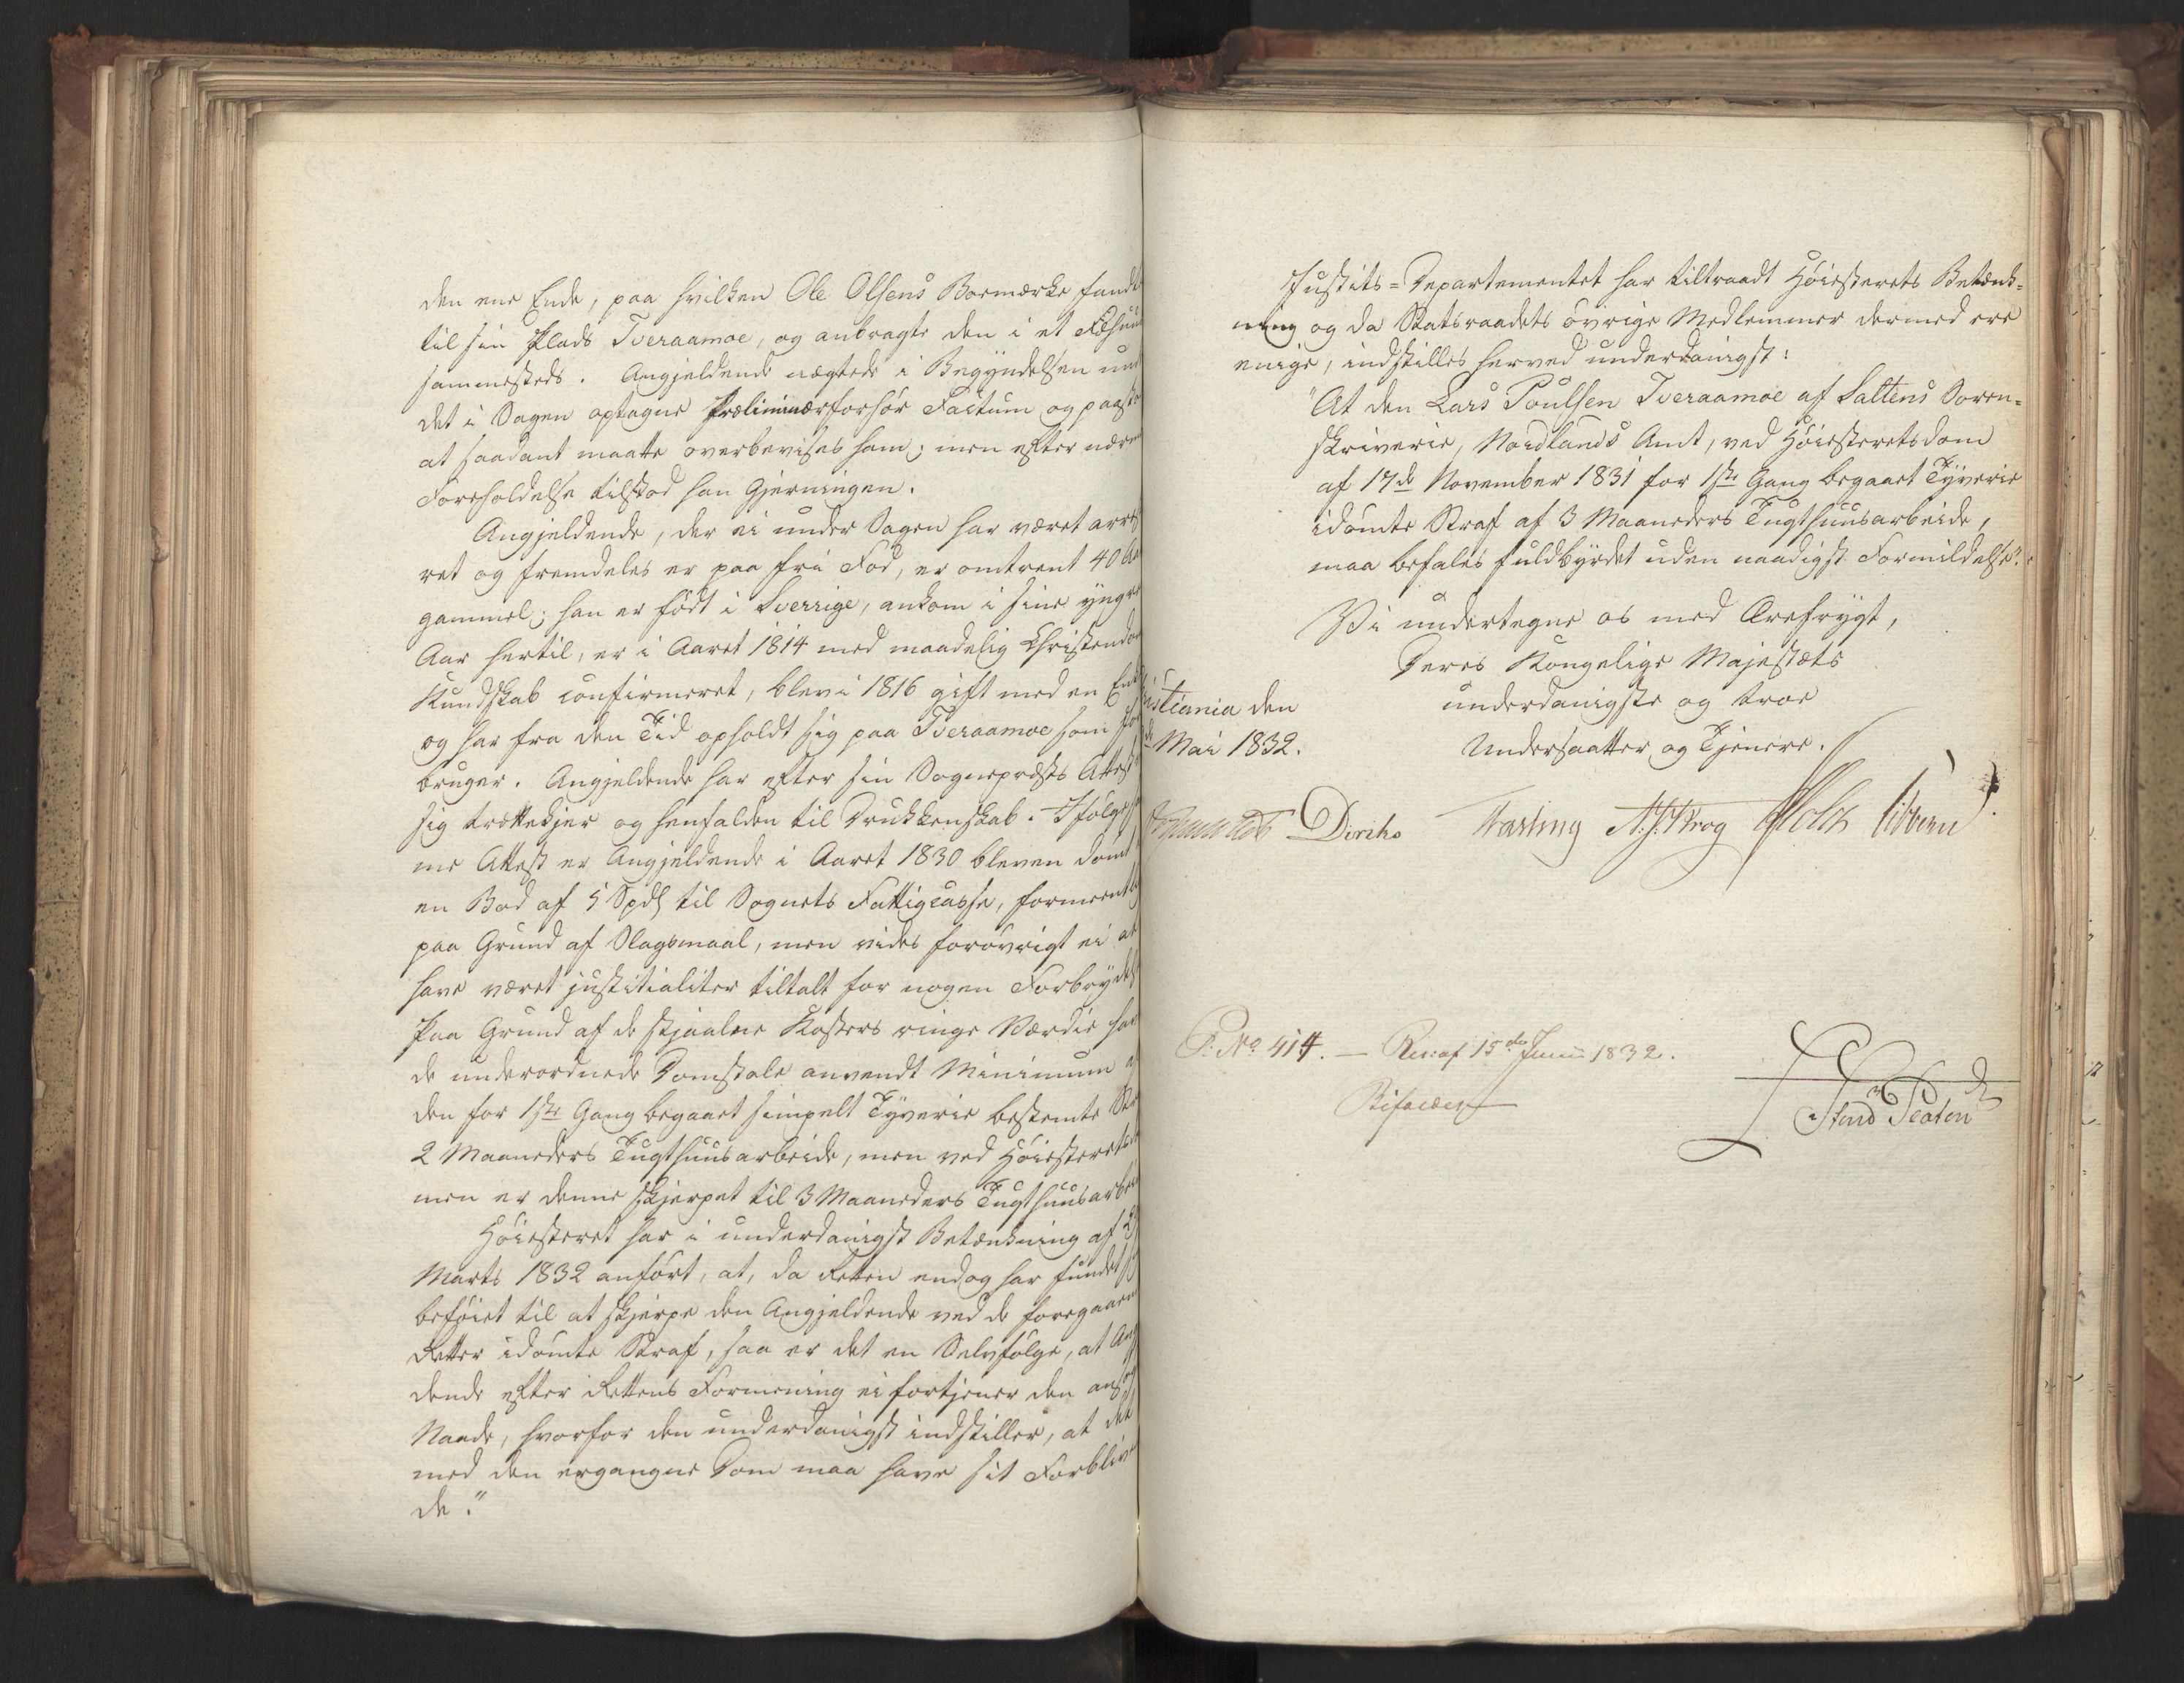 den ene Ende, paa hvilken Ole Olsens Boemærke fandt
til sin Plads Tveraamoe, og anbragte den i et Fæhuus
sammesteds. Angjeldende nægtede i Begyndelsen un
det i Sagen optagne Præliminærforhør Factum og paast
at saadant maatte overbevises ham; men efter nærm
Foreholdelse tilstod han Gjerningen.
Angjeldende, der ei under Sagen har været arre
ret og fremdeles er paa fri Fod, er omtrent 40 Aar
gammel; han er født i Sverrige, ankom i sine yngre
Aar hertil, er i Aaret 1814 med maadelig Christendom
Kundskab confirmeret, blev i 1816 gift med en Enk
og har fra den Tid opholdt sig paa Tveraamoe som
bruger. Angjeldende har efter sin Sognepræsts Attest
sig trættekjær og henfalden til Drukkenskab. Ifølge
me Attest er Angjeldende i Aaret 1830 bleven dømt
en Bod af 5 Spd til Sognets Fattigcasse, formeentlig
paa Grund af Slagsmaal, men vides forøvrigt ei at
have været justitialiter tiltalt for nogen Forbrydels
Paa Grund af de stjaalne Kosters ringe Værdie har
de underordnede Domstole anvendt Minimum a
den for 1ste Gang begaaet simpelt Tyverie bestemte
2 Maaneders Tugthuusarbeide, men ved Høiesterets
men er denne skjerpet til 3 Maaneders Tugthuusarbei
Høiesteret har i underdanigst Betænkning af
Marts 1832 anført, at, da Retten endog har fundet
beføiet til at skjerpe den Angjeldende ved de foregaaen
Retter idømte Straf, saa er det en Selvfølge, at Ang
dende efter Rettens Formening ei fortjener den ansø
Naade, hvorfor den underdanigst indstiller, at det
med den ergangne Dom maa have sit Forbliven
de."
Justits=Departementet har tiltraadt Høiesterets Betænk=
ning og da Statsraadets øvrige Medlemmer dermed ere
enige, indstilles herved underdanigst:
"At den Lars Poulsen Tveraamoe af Saltens Soren=
skriverie, Nordlands Amt, ved Høiesteretsdom
af 17de November 1831 for 1ste Gang begaaet Tyverie
idømte Straf af 3 Maaneders Tugthuusarbeide,
maa befales fuldbyrdet uden naadigst Formildelse."
Vi undertegne os med Ærefrygt,
Deres Kongelige Majestæts
underdanigste og troe
Undersaatter og Tjenere.
istiania den
de Mai 1832.
Diriks Fasting A. J. Krog Holst Vibe
P. No 414. — Res: af 15de Junii 1832.
Bifaldes